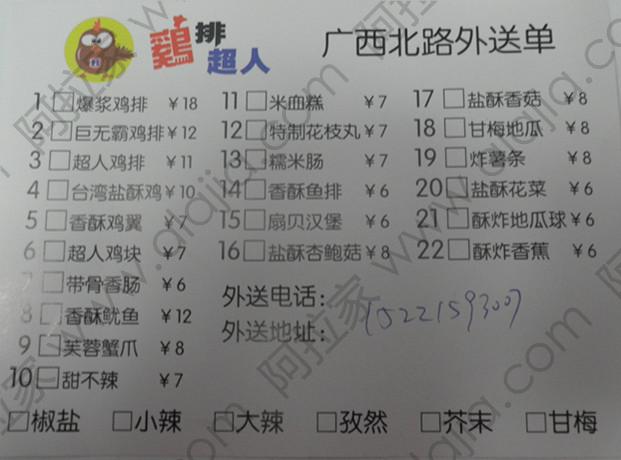 鷄排超人 广西北路外送单
1 □爆浆鸡排 ¥18
2 □巨无霸鸡排 ¥12
3 □超人鸡排 ¥11
4 □台湾盐酥鸡 ¥10
5 □香酥鸡翼 ¥7
6 □超人鸡块 ¥7
7 □带骨香肠 ¥6
8 □香酥鱿鱼 ¥12
9 □芙蓉蟹爪 ¥8
10 □甜不辣 ¥7
11 □米血糕 ¥7
12 □特制花枝丸 ¥7
13 □糯米肠 ¥7
14 □香酥鱼排 ¥6
15 □扇贝汉堡 ¥6
16 □盐酥杏鲍菇 ¥8
17 □盐酥香菇 ¥8
18 □甘梅地瓜 ¥8
19 □炸薯条 ¥8
20 □盐酥花菜 ¥6
21 □酥炸地瓜球 ¥6
22 □酥炸香蕉 ¥6
外送电话： 15221593007
外送地址：
□椒盐 □小辣 □大辣 □孜然 □芥末 □甘梅
阿拉家 www.alajia.com